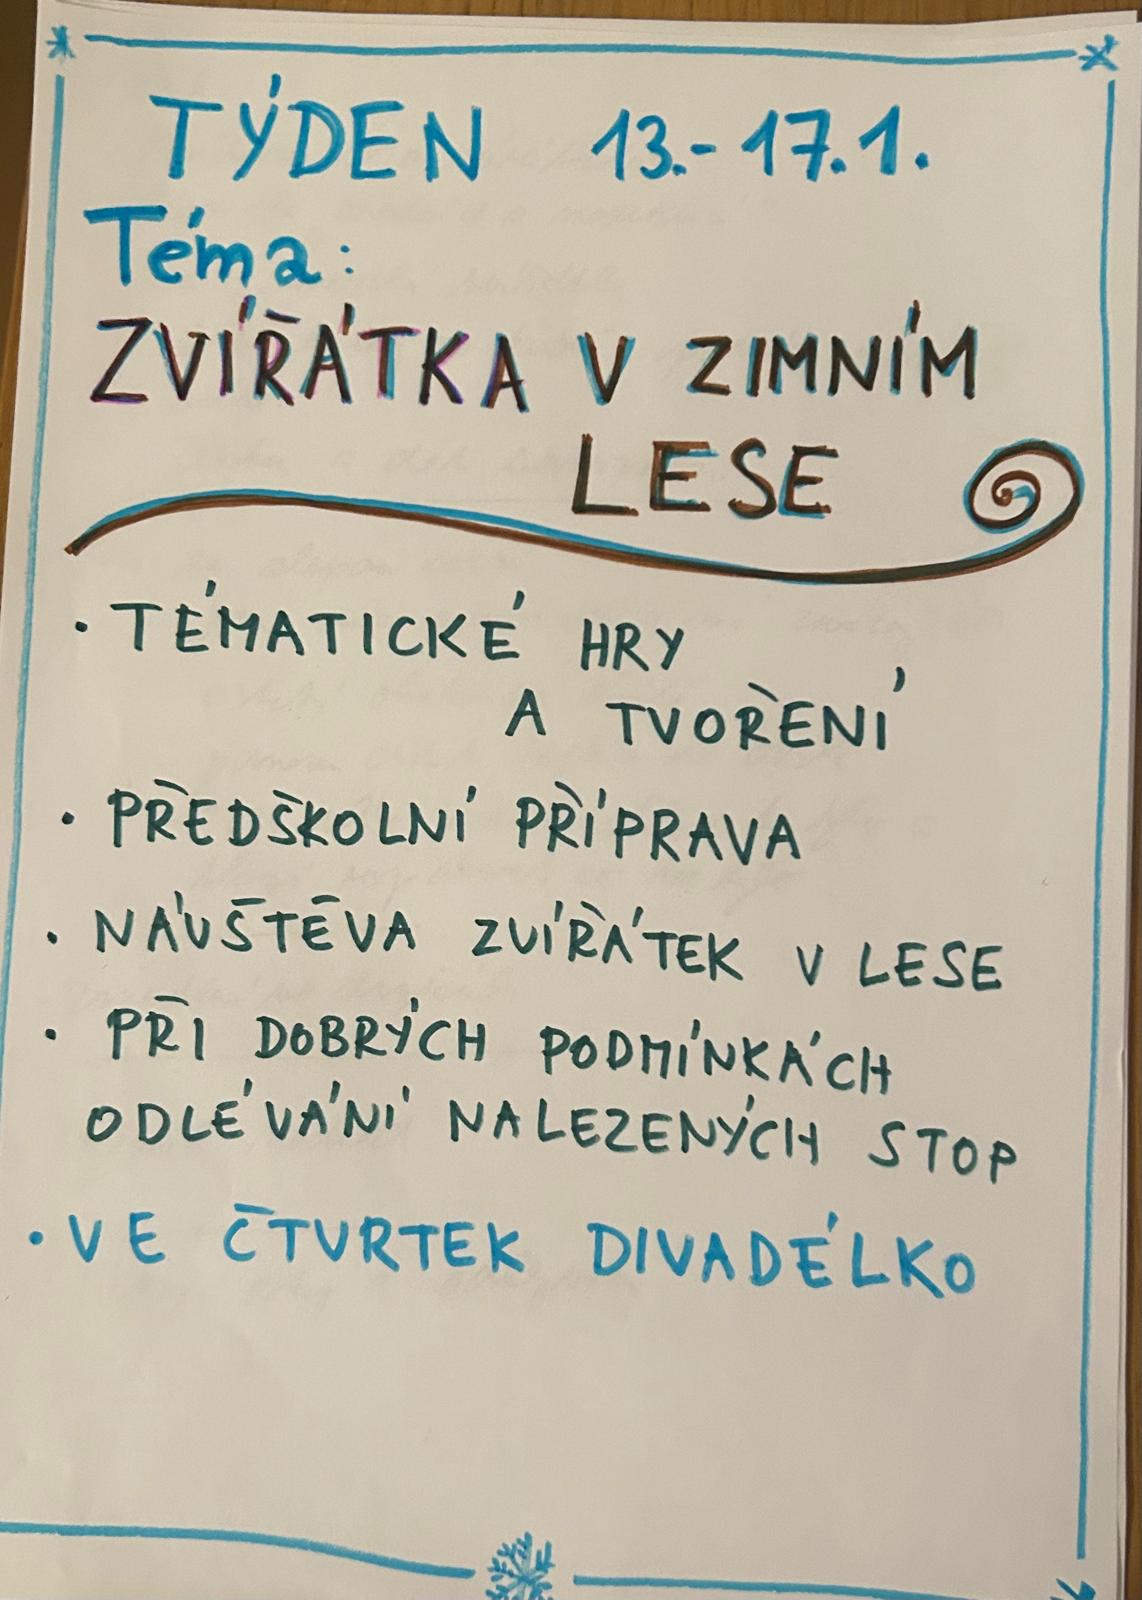 TÝDEN 13.-17.1.
Téma:
ZVÍŘÁTKA V ZIMNÍM
LESE
• TÉMATICKÉ HRY
A TVOŘENÍ
• PŘEDŠKOLNÍ PŘÍPRAVA
• NÁVŠTĚVA ZVÍŘÁTEK V LESE
• PŘI DOBRÝCH PODMÍNKÁCH
ODLÉVÁNÍ NALEZENÝCH STOP
• VE ČTVRTEK DIVADÉLKO